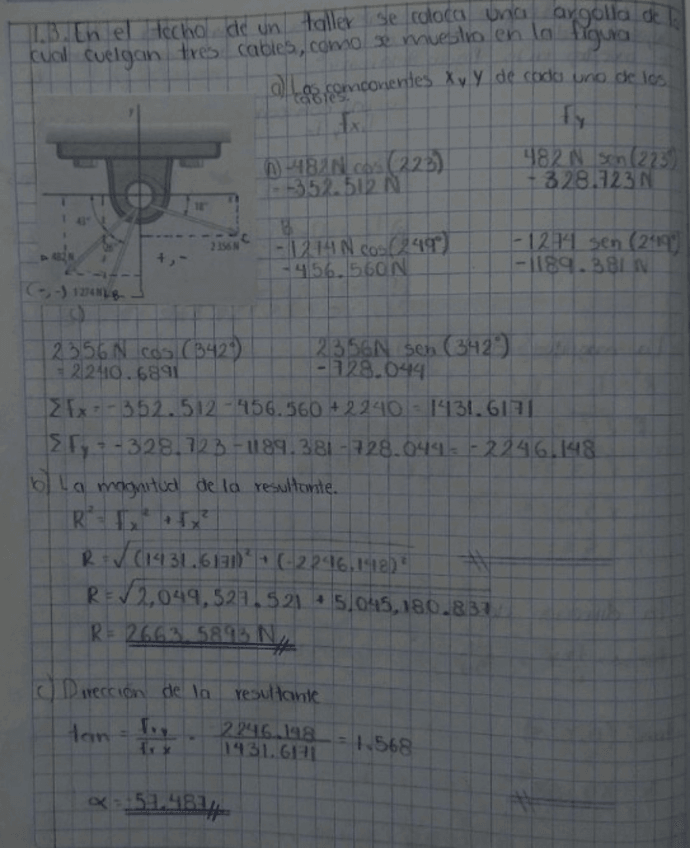 1.3. En el techo de un taller se coloca una argolla de l
cual cuelgan tres cables, como se muestra en la figura
a) Las componentes x y y de cada uno de los
cables.
Fx
Fy
A) -482N cos(223)
482 N sen(223)
= -352.512 N
-328.723N
y
43°
18°
482N
2356N C
+, -
(-,-) 1274N B
B
-1274N cos(249°)
-1274 sen(249°)
-456.560N
-1189.381 N
C)
2356N cos(342°)
2356N sen(342°)
= 2240.6891
-728.044
ΣFx = -352.512 - 456.560 + 2240 = 1431.6171
ΣFy = -328.723 - 1189.381 - 728.044 = -2246.148
b) La magnitud de la resultante.
R² = Fx² + Fx²
R = √(1431.6171)² + (-2246.148)²
R = √2,049,527.521 + 5,045,180.837
R = 2663.5893 N
c) Dirección de la resultante
tan = Fry/Frx = 2246.148/1431.6171 = 1.568
α = -57.487